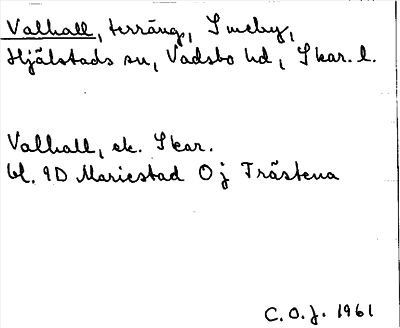 Valhall, terräng, Smeby,
Hjälstads sn, Vadsbo hd, Skar. l.
Valhall, ek. Skar.
bl. 9D Mariestad Oj Trästena
C.O.J. 1961